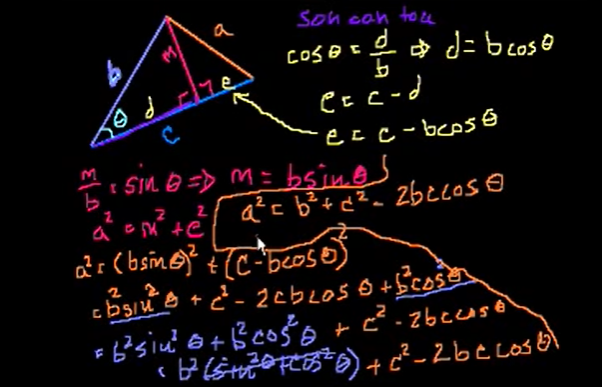 soh cah toa
cos θ = d/b ⇒ d = b cos θ
e = c - d
e = c - b cos θ
a
b
m
θ
d
e
c
m/b = sin θ ⇒ m = b sin θ
a² = m² + e²
a² = b² + c² - 2bc cos θ
a² = (b sin θ)² + (c - b cos θ)²
= b² sin² θ + c² - 2cb cos θ + b² cos² θ
= b² sin² θ + b² cos² θ + c² - 2bc cos θ
= b² (sin² θ + cos² θ) + c² - 2bc cos θ